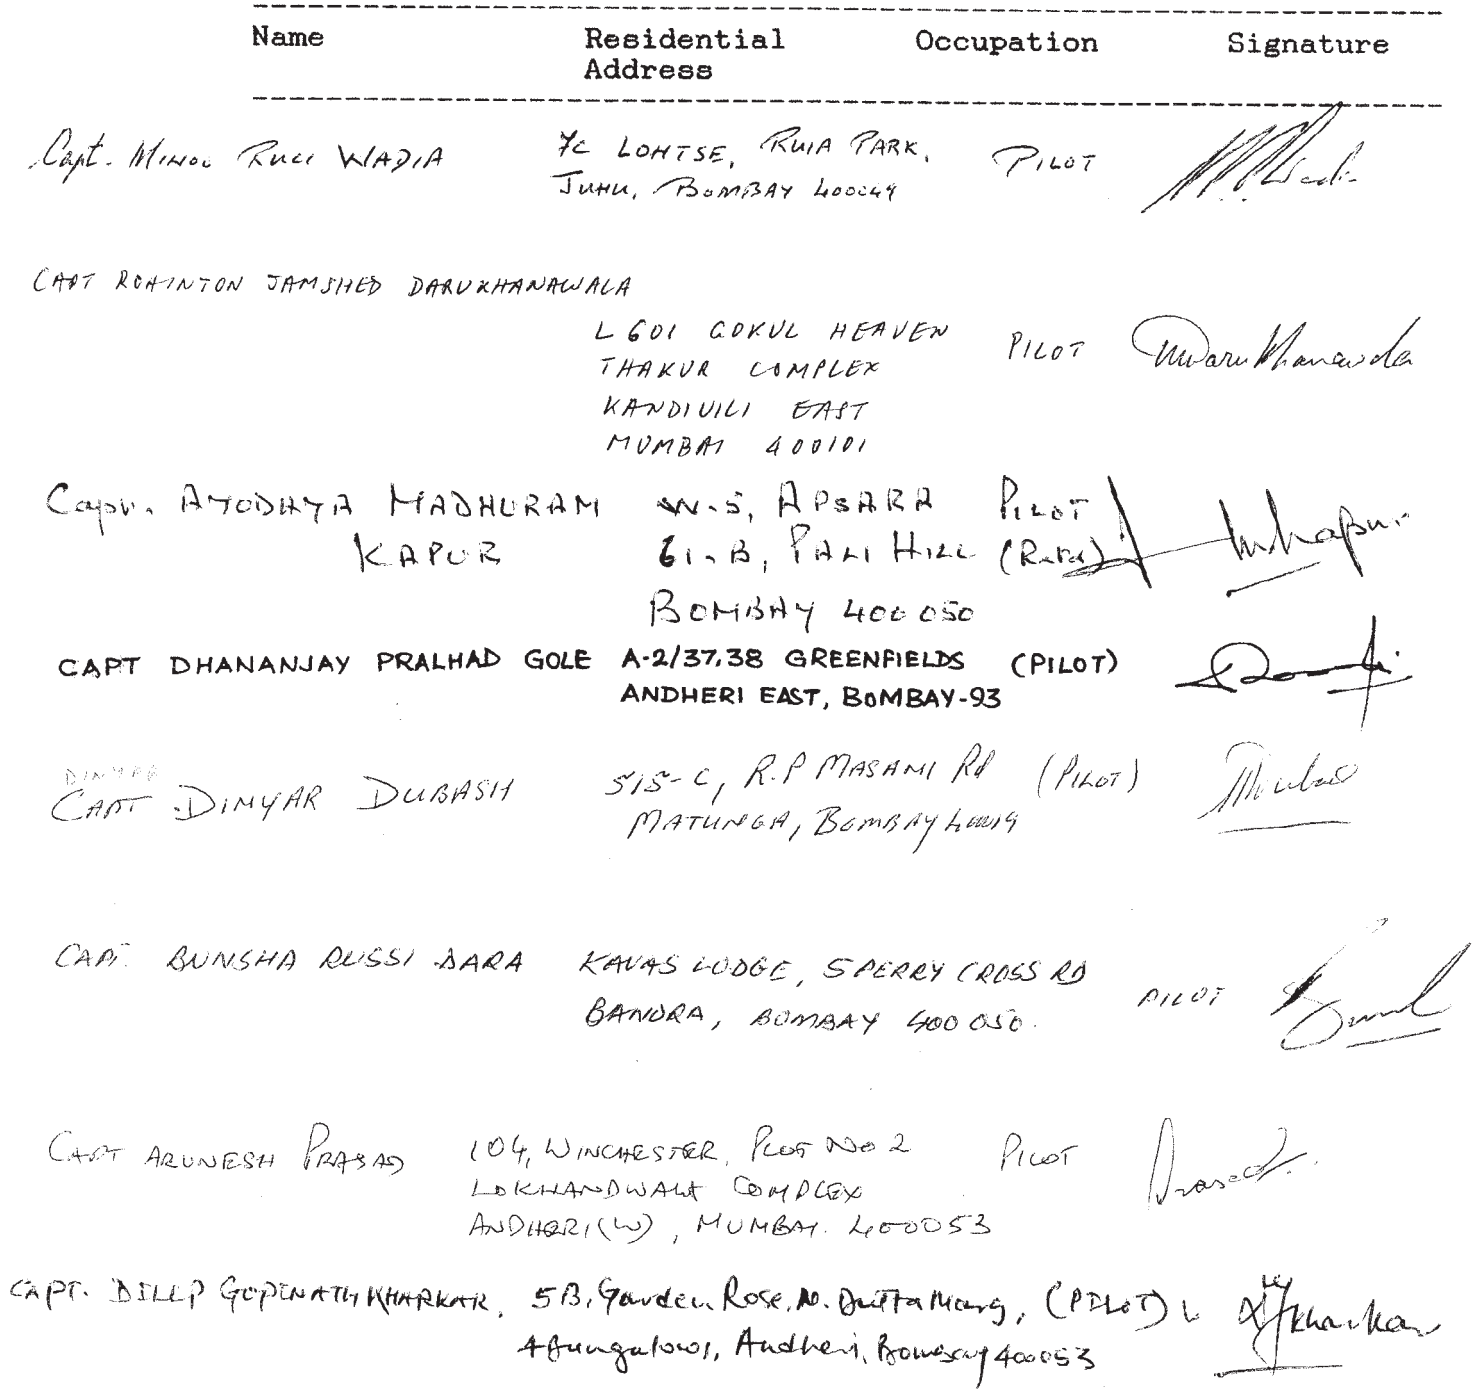 Name Residential Occupation Signature
Address
Capt. MINOO RUSI WADIA 7C LOHTSE, RUIA PARK, PILOT
JUHU, BOMBAY 400049
CAPT ROHINTON JAMSHED DARUKHANAWALA
L 601 GOKUL HEAVEN PILOT
THAKUR COMPLEX
KANDIVILI EAST
MUMBAI 400101
Capt. AYODHYA MADHURAM W-5, APSARA PILOT
KAPUR 61-B, PALI HILL (Retd)
BOMBAY 400 050
CAPT DHANANJAY PRALHAD GOLE A-2/37.38 GREENFIELDS (PILOT)
ANDHERI EAST, BOMBAY-93
DINYAR
CAPT DINYAR DUBASH 515-C, R.P MASANI Rd (PILOT)
MATUNGA, BOMBAY 400019
CAPT. BUNSHA RUSSI DARA KAVAS LODGE, 5 PERRY CROSS RD
BANDRA, BOMBAY 400 050. PILOT
CAPT ARUNESH PRASAD 104, WINCHESTER, PLOT NO 2 PILOT Prasad
LOKHANDWALA COMPLEX
ANDHERI (W), MUMBAI. 400053
CAPT. DILIP GOPINATH KHARKAR, 5B, Garden Rose, N. Dutta Marg, (PILOT) Kharkar
4 Bungalows, Andheri, Bombay 400053